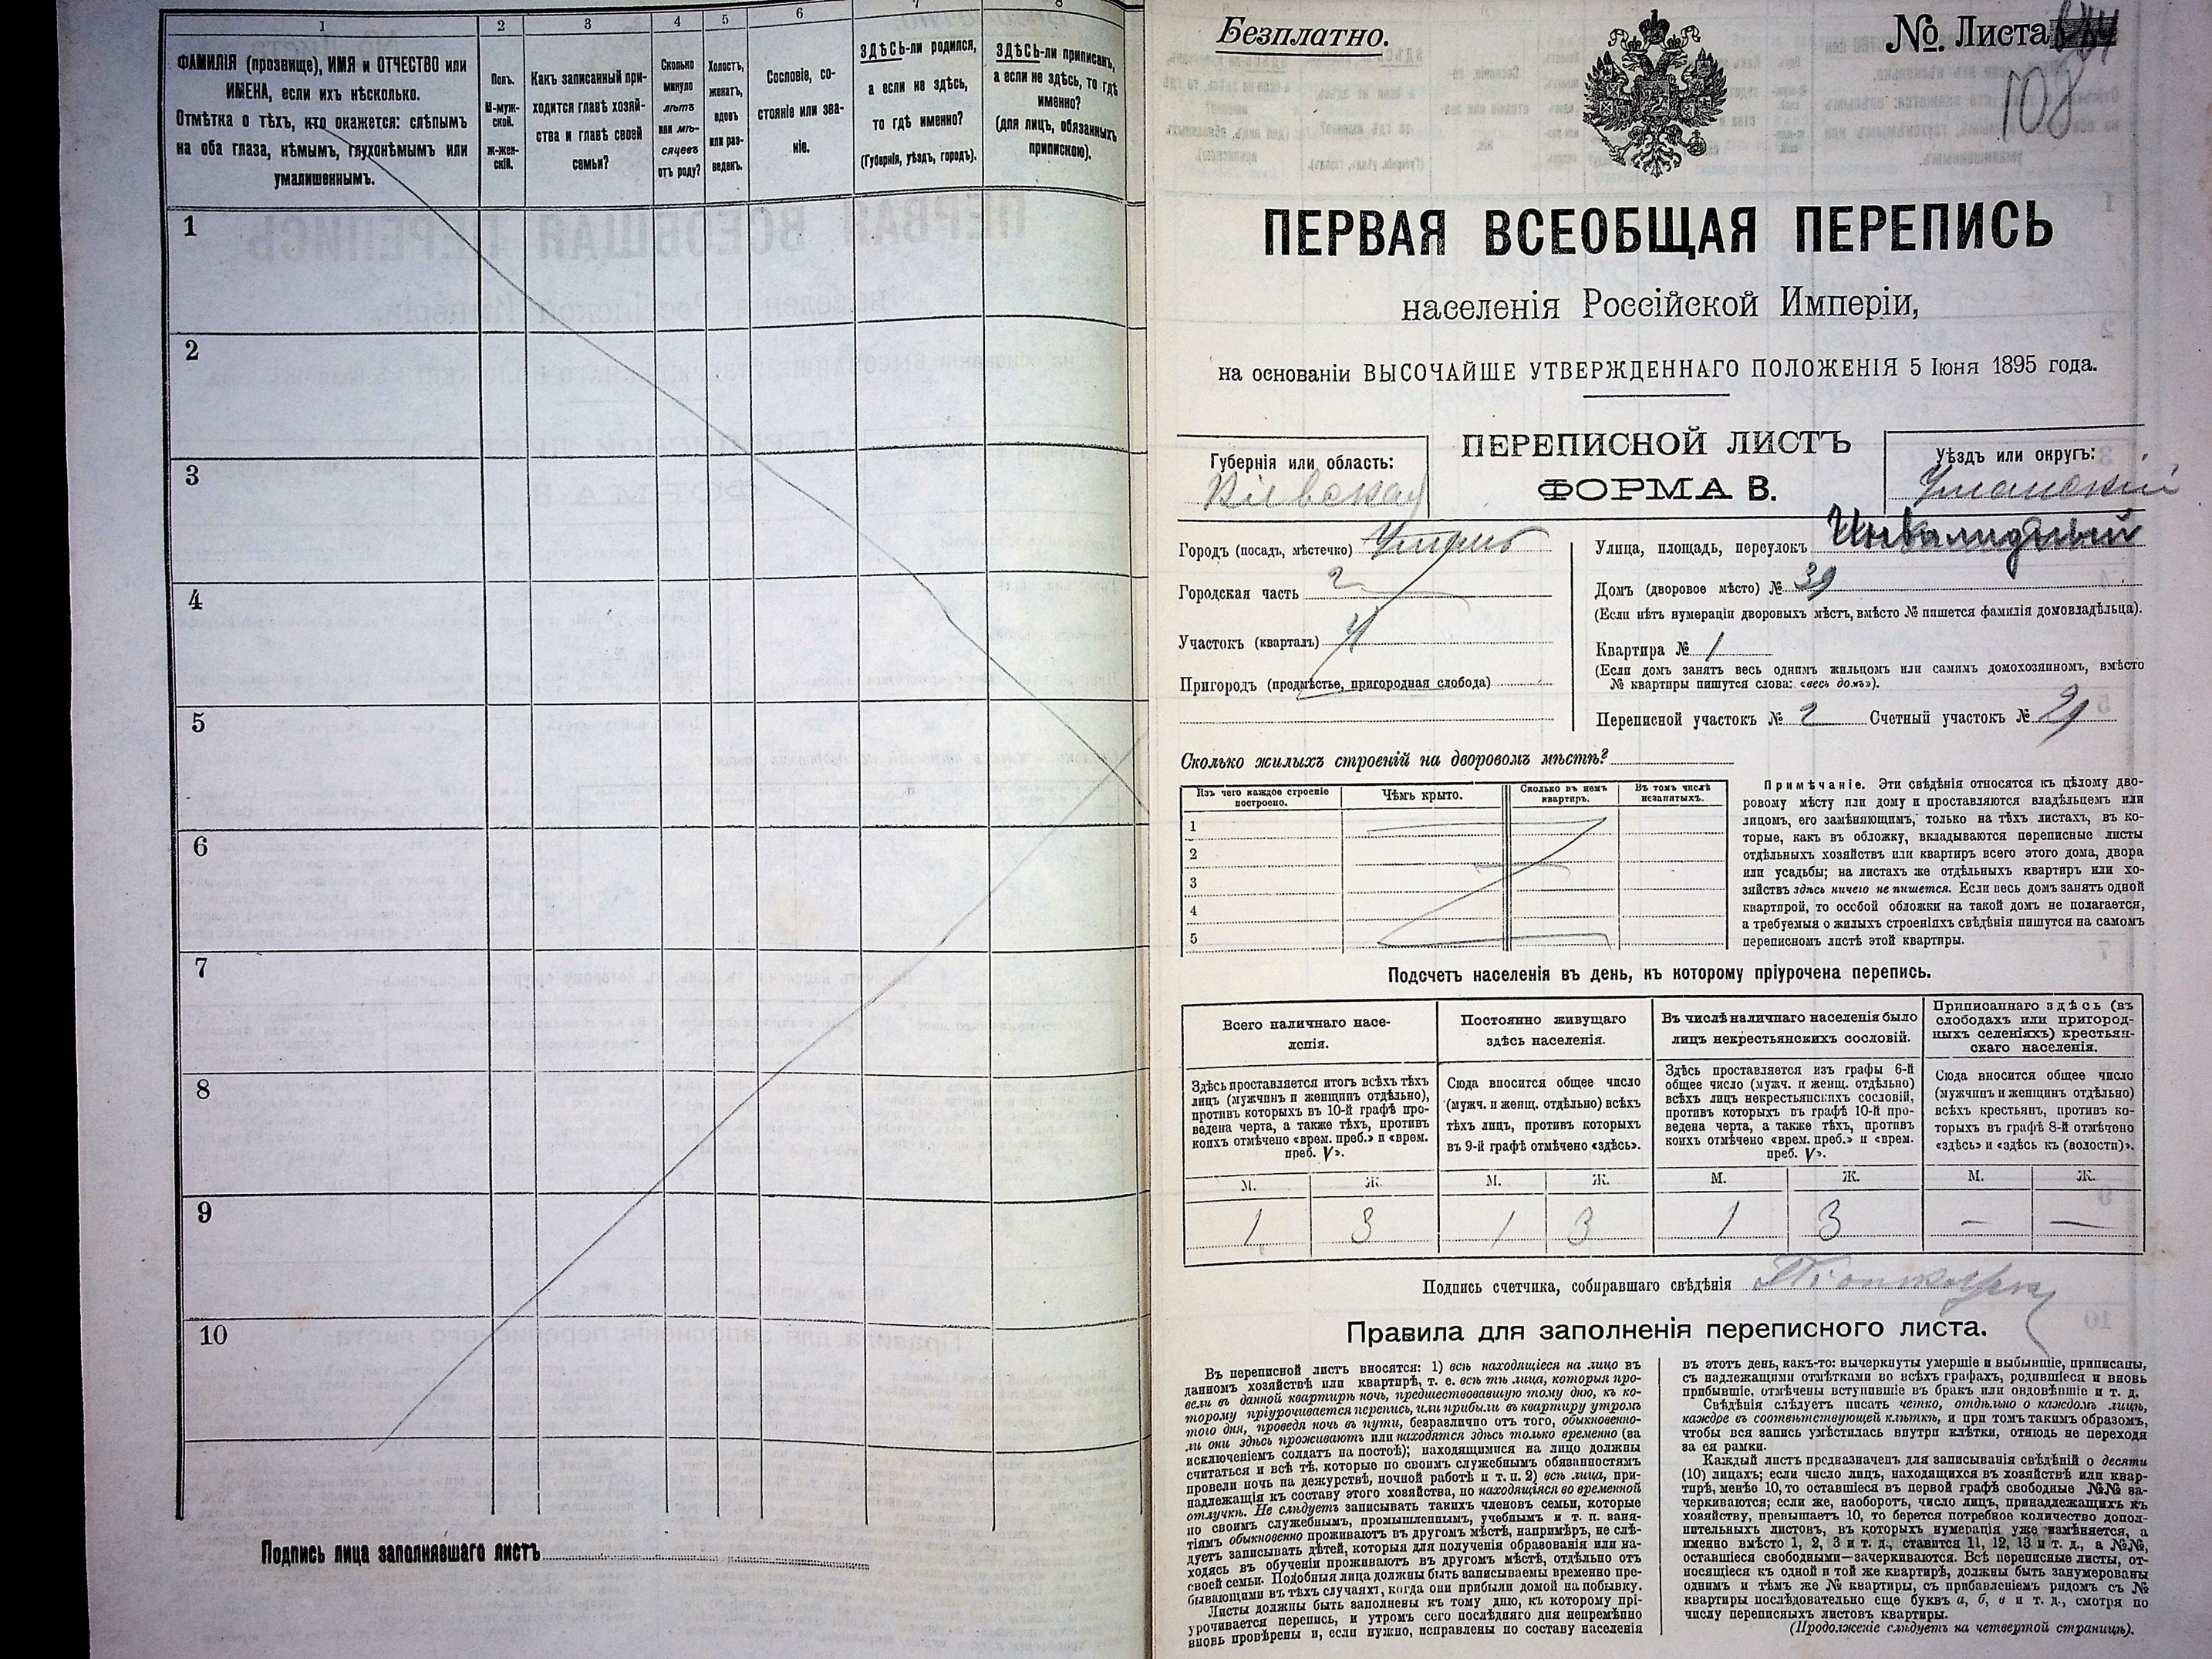 1
2
3
4
5
6
7
8
ФАМИЛІЯ (прозвище), ИМЯ и ОТЧЕСТВО или
ИМЕНА, если ихъ нѣсколько.
Отмѣтка о тѣхъ, кто окажется: слѣпымъ
на оба глаза, нѣмымъ, глухонѣмымъ или
умалишеннымъ.
Полъ.
М-муж-
ской.
ж-жен-
скій.
Какъ записанный при-
ходится главѣ хозяй-
ства и главѣ своей
семьи?
Сколько
минуло
лѣтъ
или мѣ-
сяцевъ
отъ роду?
Холостъ,
женатъ,
вдовъ
или раз-
веденъ.
Сословіе, со-
стояніе или зва-
ніе.
ЗДѢСЬ-ли родился,
а если не здѣсь,
то гдѣ именно?
(Губернія, уѣздъ, городъ).
ЗДѢСЬ-ли приписанъ,
а если не здѣсь, то гдѣ
именно?
(для лицъ, обязанныхъ
припискою).
1
2
3
4
5
6
7
8
9
10
Подпись лица заполнявшаго листъ
Безплатно.
№. Листа
108
ПЕРВАЯ ВСЕОБЩАЯ ПЕРЕПИСЬ
населенія Россійской Имперіи,
на основаніи ВЫСОЧАЙШЕ УТВЕРЖДЕННАГО ПОЛОЖЕНІЯ 5 Іюня 1895 года.
Губернія или область:
Кіевская
ПЕРЕПИСНОЙ ЛИСТЪ
ФОРМА В.
Уѣздъ или округъ:
Уманскій
Городъ (посадъ, мѣстечко) Умань
Городская часть 2
Участокъ (кварталъ) 4
Пригородъ (предмѣстье, пригородная слобода)
Улица, площадь, переулокъ Инвалидный
Домъ (дворовое мѣсто) № 39
(Если нѣтъ нумераціи дворовыхъ мѣстъ, вмѣсто № пишется фамилія домовладѣльца).
Квартира № 1
(Если домъ занятъ весь однимъ жильцомъ или самимъ домохозяиномъ, вмѣсто
№ квартиры пишутся слова: «весь домъ»).
Переписной участокъ № 2 Счетный участокъ № 21
Сколько жилыхъ строеній на дворовомъ мѣстѣ?
Изъ чего каждое строеніе
построено.
Чѣмъ крыто.
Сколько въ немъ
квартиръ.
Въ томъ числѣ
незанятыхъ.
1
2
3
4
5
Примѣчаніе. Эти свѣдѣнія относятся къ цѣлому дво-
ровому мѣсту или дому и проставляются владѣльцемъ или
лицомъ, его замѣняющимъ, только на тѣхъ листахъ, въ ко-
торые, какъ въ обложку, вкладываются переписные листы
отдѣльныхъ хозяйствъ или квартиръ всего этого дома, двора
или усадьбы; на листахъ же отдѣльныхъ квартиръ или хо-
зяйствъ здѣсь ничего не пишется. Если весь домъ занятъ одной
квартирой, то особой обложки на такой домъ не полагается,
а требуемыя о жилыхъ строеніяхъ свѣдѣнія пишутся на самомъ
переписномъ листѣ этой квартиры.
Подсчетъ населенія въ день, къ которому пріурочена перепись.
Всего наличнаго насе-
ленія.
Здѣсь проставляется итогъ всѣхъ тѣхъ
лицъ (мужчинъ и женщинъ отдѣльно),
противъ которыхъ въ 10-й графѣ про-
ведена черта, а также тѣхъ, противъ
коихъ отмѣчено «врем. преб.» и «врем.
преб. V».
Постоянно живущаго
здѣсь населенія.
Сюда вносится общее число
(мужч. и женщ. отдѣльно) всѣхъ
тѣхъ лицъ, противъ которыхъ
въ 9-й графѣ отмѣчено «здѣсь».
Въ числѣ наличнаго населенія было
лицъ некрестьянскихъ сословій.
Здѣсь проставляется изъ графы 6-й
общее число (мужч. и женщ. отдѣльно)
всѣхъ лицъ некрестьянскихъ сословій,
противъ которыхъ въ графѣ 10-й про-
ведена черта, а также тѣхъ, противъ
коихъ отмѣчено «врем. преб.» и «врем.
преб. V».
Приписаннаго здѣсь (въ
слободахъ или пригород-
ныхъ селеніяхъ) крестьян-
скаго населенія.
Сюда вносится общее число
(мужчинъ и женщинъ отдѣльно)
всѣхъ крестьянъ, противъ ко-
торыхъ въ графѣ 8-й отмѣчено
«здѣсь» и «здѣсь къ (волости)».
М. Ж. М. Ж. М. Ж. М. Ж.
1 3 1 3 1 3 — —
Подпись счетчика, собиравшаго свѣдѣнія
Правила для заполненія переписного листа.
Въ переписной листъ вносятся: 1) всѣ находящіеся на лицо въ
данномъ хозяйствѣ или квартирѣ, т. е. всѣ тѣ лица, которыя про-
вели въ данной квартирѣ ночь, предшествовавшую тому дню, къ ко-
торому пріурочивается перепись, или прибыли въ квартиру утромъ
того дня, проведя ночь въ пути, безразлично отъ того, обыкновенно-
ли они здѣсь проживаютъ или находятся здѣсь только временно (за
исключеніемъ солдатъ на постоѣ); находящимися на лицо должны
считаться и всѣ тѣ, которые по своимъ служебнымъ обязанностямъ
провели ночь на дежурствѣ, ночной работѣ и т. п. 2) всѣ лица, при-
надлежащія къ составу этого хозяйства, но находящіяся во временной
отлучкѣ. Не слѣдуетъ записывать такихъ членовъ семьи, которые
по своимъ служебнымъ, промышленнымъ, учебнымъ и т. п. заня-
тіямъ обыкновенно проживаютъ въ другомъ мѣстѣ, напримѣръ, не слѣ-
дуетъ записывать дѣтей, которыя для полученія образованія или на-
ходясь въ обученіи проживаютъ въ другомъ мѣстѣ, отдѣльно отъ
своей семьи. Подобныя лица должны быть записываемы временно пре-
бывающими въ тѣхъ случаяхъ, когда они прибыли домой на побывку.
Листы должны быть заполнены къ тому дню, къ которому прі-
урочивается перепись, и утромъ сего послѣдняго дня непремѣнно
вновь провѣрены и, если нужно, исправлены по составу населенія
въ этотъ день, какъ-то: вычеркнуты умершіе и выбывшіе, приписаны,
съ надлежащими отмѣтками во всѣхъ графахъ, родившіеся и вновь
прибывшіе, отмѣчены вступившіе въ бракъ или овдовѣвшіе и т. д.
Свѣдѣнія слѣдуетъ писать четко, отдѣльно о каждомъ лицѣ,
каждое въ соотвѣтствующей клѣткѣ, и при томъ такимъ образомъ,
чтобы вся запись умѣстилась внутри клѣтки, отнюдь не переходя
за ея рамки.
Каждый листъ предназначенъ для записыванія свѣдѣній о десяти
(10) лицахъ; если число лицъ, находящихся въ хозяйствѣ или квар-
тирѣ, менѣе 10, то оставшіеся въ первой графѣ свободные №№ за-
черкиваются; если же, наоборотъ, число лицъ, принадлежащихъ къ
хозяйству, превышаетъ 10, то берется потребное количество допол-
нительныхъ листовъ, въ которыхъ нумерація уже измѣняется, а
именно вмѣсто 1, 2, 3 и т. д., ставится 11, 12, 13 и т. д., а №№,
оставшіеся свободными—зачеркиваются. Всѣ переписные листы, от-
носящіеся къ одной и той же квартирѣ, должны быть занумерованы
однимъ и тѣмъ же № квартиры, съ прибавленіемъ рядомъ съ №
квартиры послѣдовательно еще буквъ а, б, в и т. д., смотря по
числу переписныхъ листовъ квартиры.
(Продолженіе слѣдуетъ на четвертой страницѣ).